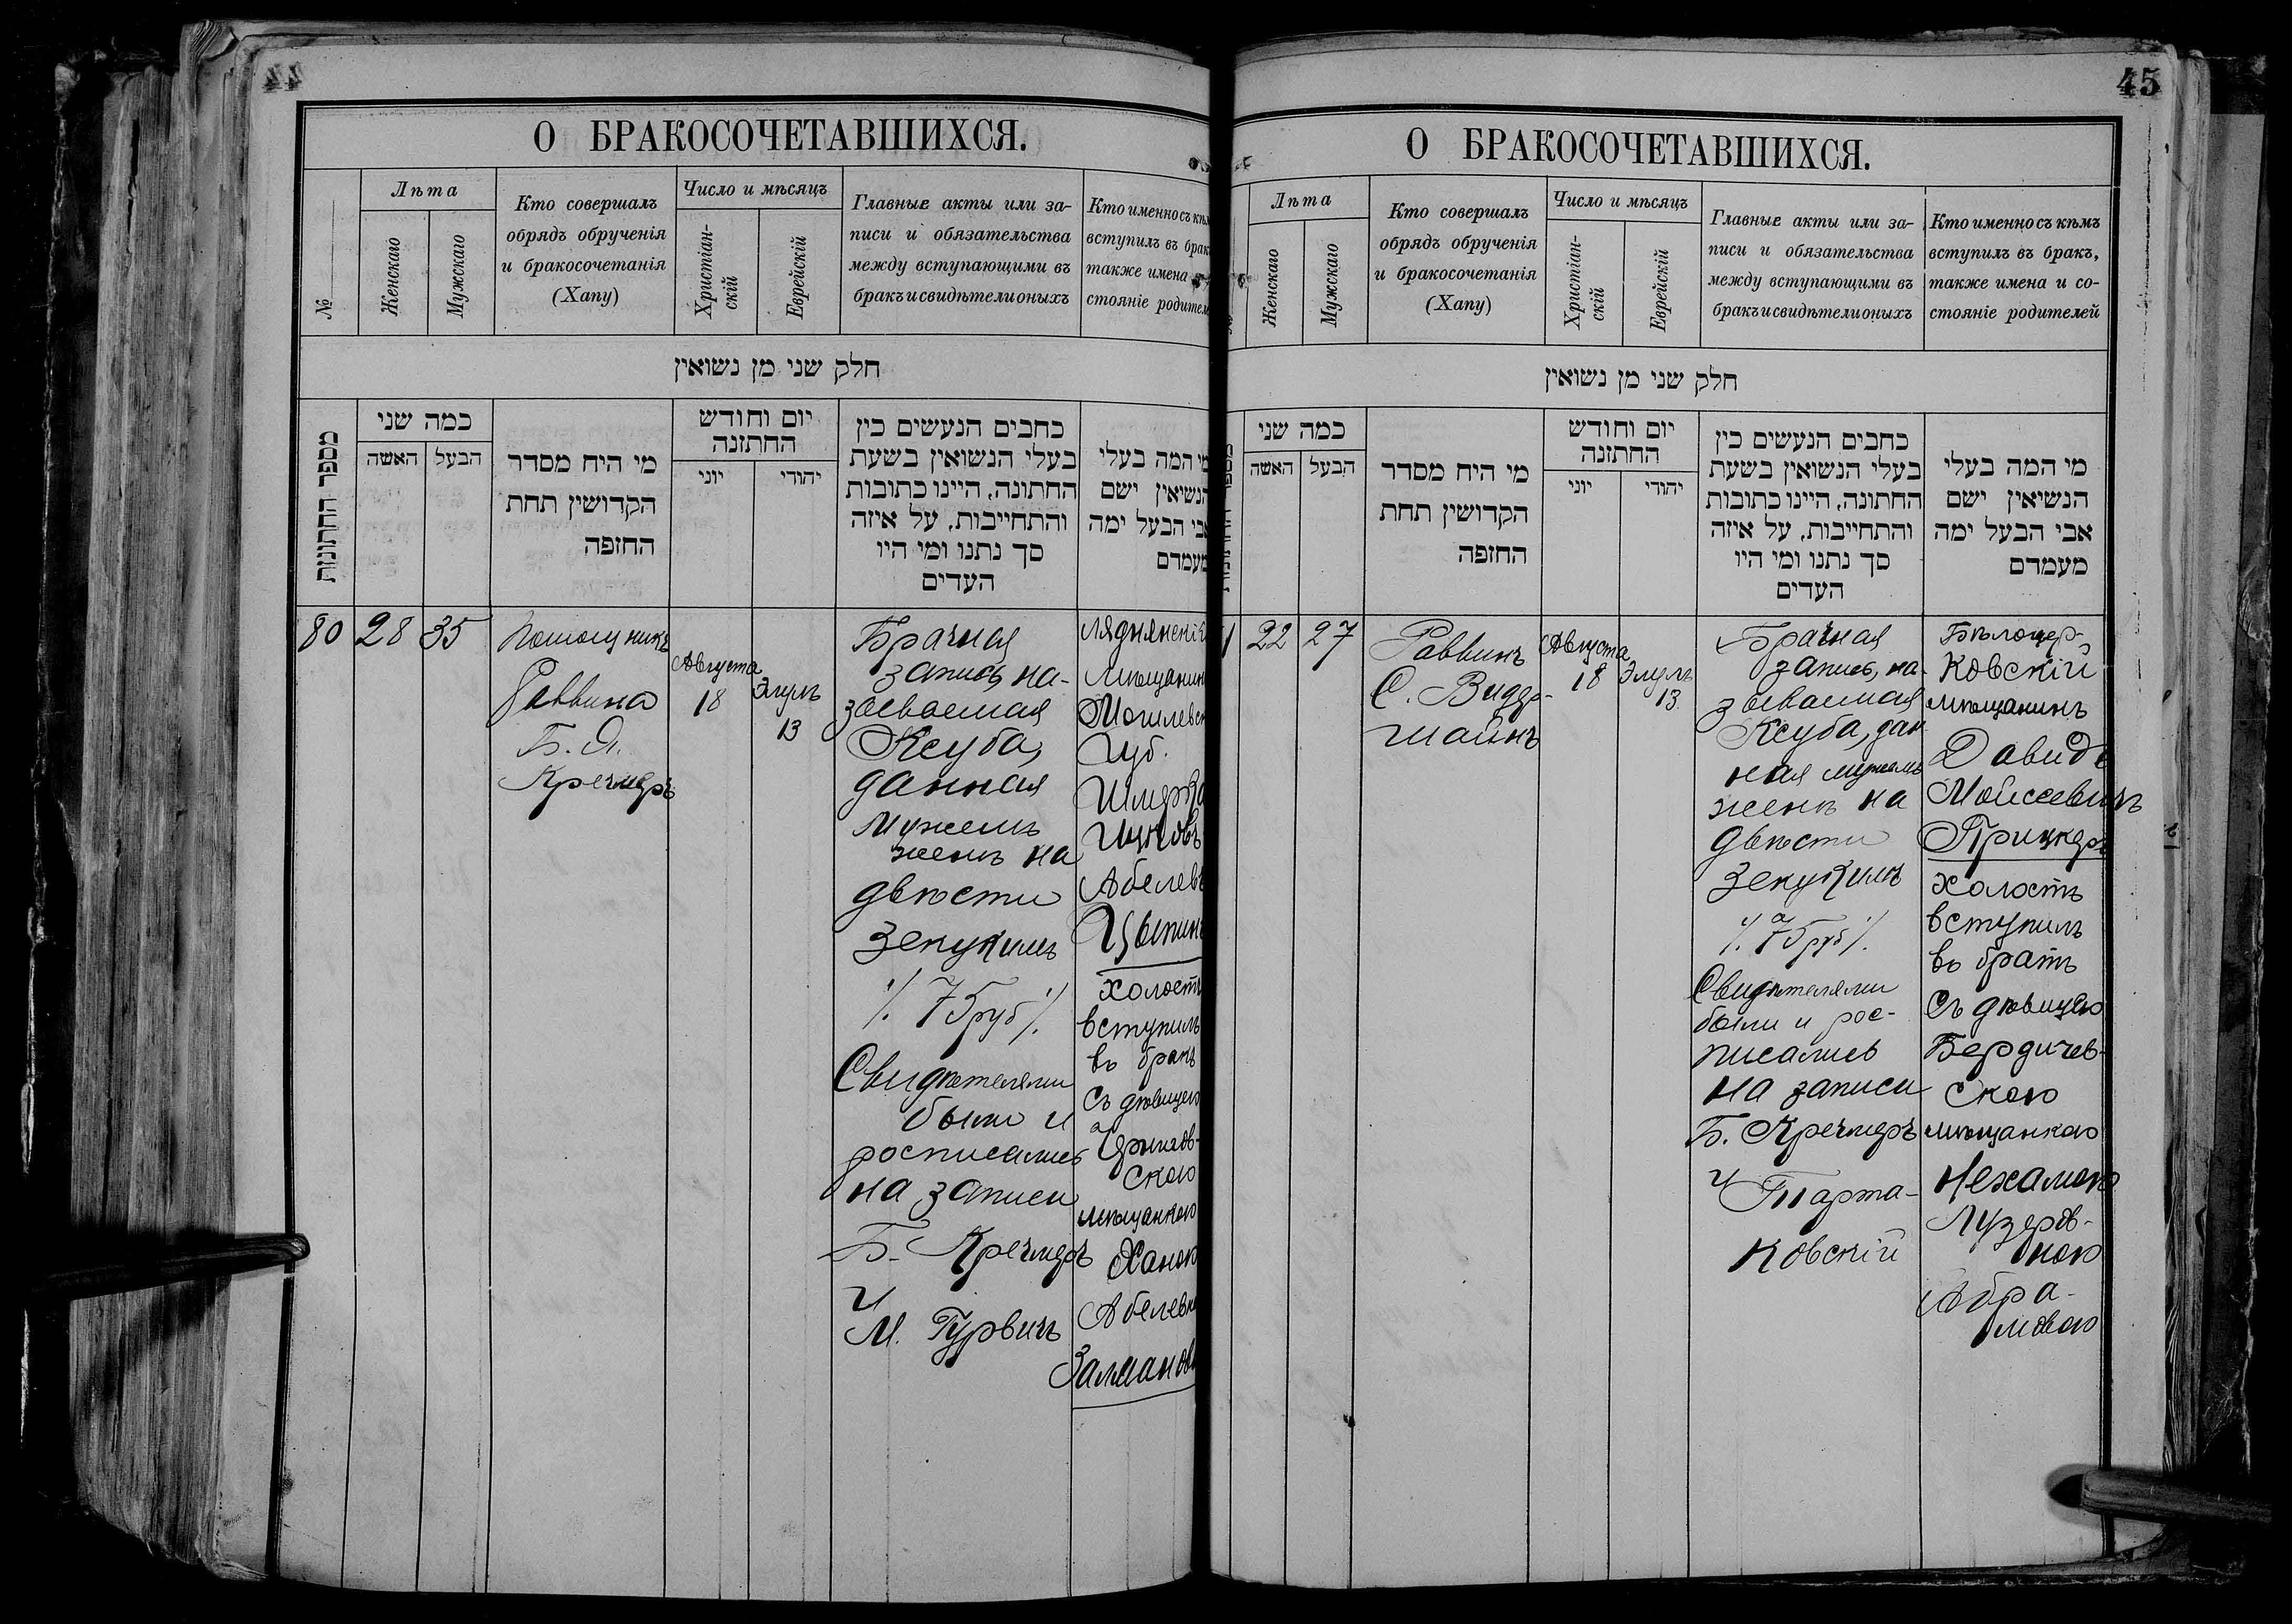 44
О БРАКОСОЧЕТАВШИХСЯ.
№
Лѣта
Женскаго
Мужскаго
Кто совершалъ
обрядъ обрученія
и бракосочетанія
(Хапу)
Число и мѣсяцъ
Христіан-
скій
Еврейскій
Главные акты или за-
писи и обязательства
между вступающими въ
бракъ и свидѣтели оныхъ
Кто именно съ
вступилъ въ
также имена
стояніе
חלק שני מן נשואין
מספר החתונות
כמה שני
האשה
הבעל
מי היח מסדר
הקדושין תחת
החופה
יום וחודש
החתונה
יוני
יהודי
כתבים הנעשים בין
בעלי הנשואין בשעת
החתונה, היינו כתובות
והתחייבות, על איזה
סך נתנו ומי היו
העדים
מי המה בעלי
הנשיאין ישם
אבי הבעל ימה
מעמדם
80
28
35
Помощникъ
Раввина
Б. Я.
Кречмеръ
Августа
18
Элулъ
13
Брачная
запись, на-
зываемая
Ксуба,
данная
мужемъ
женѣ на
двѣсти
зекукимъ
/. 75 руб /.
Свидѣтелями
были и
росписались
на записи
Б. Кречмеръ
и
М. Гурвичъ
Мѣщанинъ
Губ.
Абелевъ
Цыпинъ
холостъ
вступилъ
въ бракъ
съ дѣвицею
скою
мѣщанкою
Ханою
45
О БРАКОСОЧЕТАВШИХСЯ.
Лѣта
Женскаго
Мужскаго
Кто совершалъ
обрядъ обрученія
и бракосочетанія
(Хапу)
Число и мѣсяцъ
Христіан-
скій
Еврейскій
Главные акты или за-
писи и обязательства
между вступающими въ
бракъ и свидѣтели оныхъ
Кто именно съ кѣмъ
вступилъ въ бракъ,
также имена и со-
стояніе родителей
חלק שני מן נשואין
כמה שני
האשה
הבעל
מי היח מסדר
הקדושין תחת
החופה
יום וחודש
החתונה
יוני
יהודי
כתבים הנעשים בין
בעלי הנשואין בשעת
החתונה, היינו כתובות
והתחייבות, על איזה
סך נתנו ומי היו
העדים
מי המה בעלי
הנשיאין ישם
אבי הבעל ימה
מעמדם
22
27
Раввинъ
С. Видер-
шайнъ
Августа
18
Элулъ
13
Брачная
запись, на-
зываемая
Ксуба, дан
ная мужемъ
женѣ на
двѣсти
зекукимъ
/. 75 руб /.
Свидѣтелями
были и рос-
писались
на записи
Б. Кречмеръ
и Тарта-
ковскій
Бѣлоцер-
ковскій
мѣщанинъ
Давидъ
Моисеевичъ
Прицкеръ
холостъ
вступилъ
въ бракъ
съ дѣвицею
Бердичев-
скою
мѣщанкою
Нехамою
Лузеров-
ною
Абра-
мовою